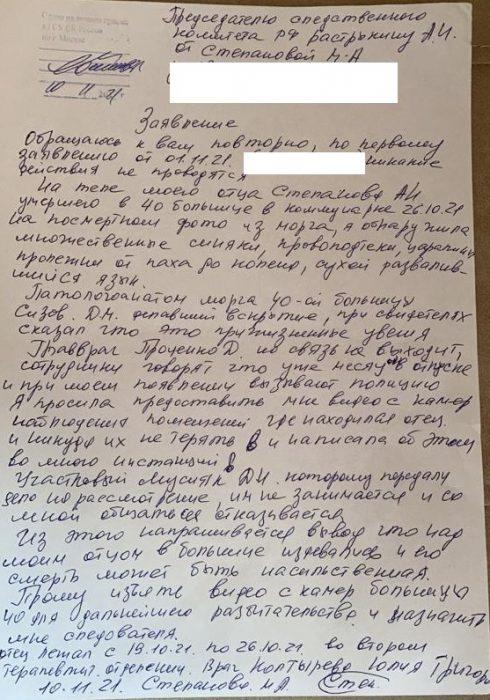 ГСУ СК России
по г. Москве
10 11 21
Председателю следственного
комитета РФ Бастрыкину А.И.
от Степановой М.А
Заявление
Обращаюсь к вам повторно, по первому
заявлению от 01.11.21.
действия не проводятся
На теле моего отца Степанова АИ
умершего в 40 больнице в Коммунарке 26.10.21
на посмертном фото из морга, я обнаружила
множественные синяки, кровоподтеки, царапины
пролежни от паха до колено, сухой развалив-
шийся язык.
Патологоанатом морга 40-ой больницы
Сизов. Д.Н. делавший вскрытие, при свидетелях
сказал что это прижизненные увечия
Главврач Проценко Д. на связь не выходит,
сотрудники говорят что уже месяц в отпуске
и при моем появлении вызывают полицию
Я просила предоставить мне видео с камер
наблюдения помещений где находился отец.
и никуда их не терять и написала об этом
во много инстанций!
Участковый Мусияк Д.И. которому передали
дело на рассмотрение, им не занимается и со
мной общаться отказывается
Из этого напрашивается вывод что над
моим отцом в больнице издевались и его
смерть может быть насильственная.
Прошу изъять видео с камер больницы
40 для дальнейшего разбитательства и назначить
мне следователя.
отец лежал с 19.10.21. по 26.10.21. во втором
терапевтит. отделении. Врач Колтырева Юлия Григор
10.11.21. Степанова МА